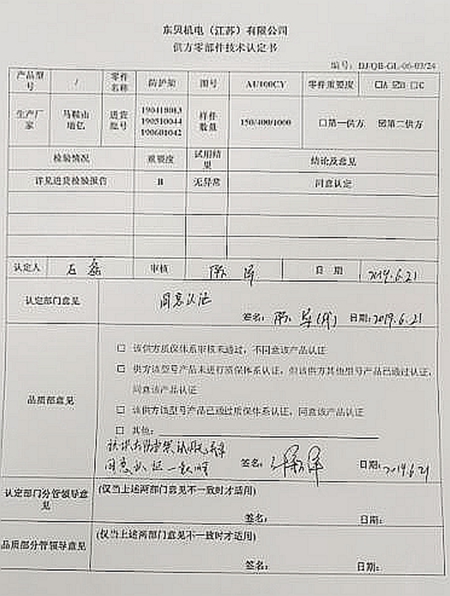 东贝机电（江苏）有限公司
供方零部件技术认定书
编号：DJ/QB-GL-06-03/24
产品型号 / 零件名称 防护架 图号 AU100CY 零件重要度 □A ☑B □C
生产厂家 马鞍山 进货批号 190418083 190510044 190601042 样件数量 150/400/1000 □第一供方 ☑第二供方
检验情况 重要度 试用结果 结论及意见
详见进货检验报告 B 无异常 同意认定
认定人 石磊 审核 日期 2019.6.21
认定部门意见 同意认证
签名： 日期：2019.6.21
品质部意见
□ 该供方质保体系审核未通过，不同意该产品认证
□ 供方该型号产品未进行质保体系认证，但该供方其他型号产品已通过认证，
同意该产品认证
□ 该供方该型号产品已通过质保体系认证，同意该产品认证
□ 其他：
同意认证
签名： 2019.6.21
认定部门分管领导意见 (仅当上述两部门意见不一致时才适用)
签名： 日期：
品质部分管领导意见 (仅当上述两部门意见不一致时才适用)
签名： 日期：